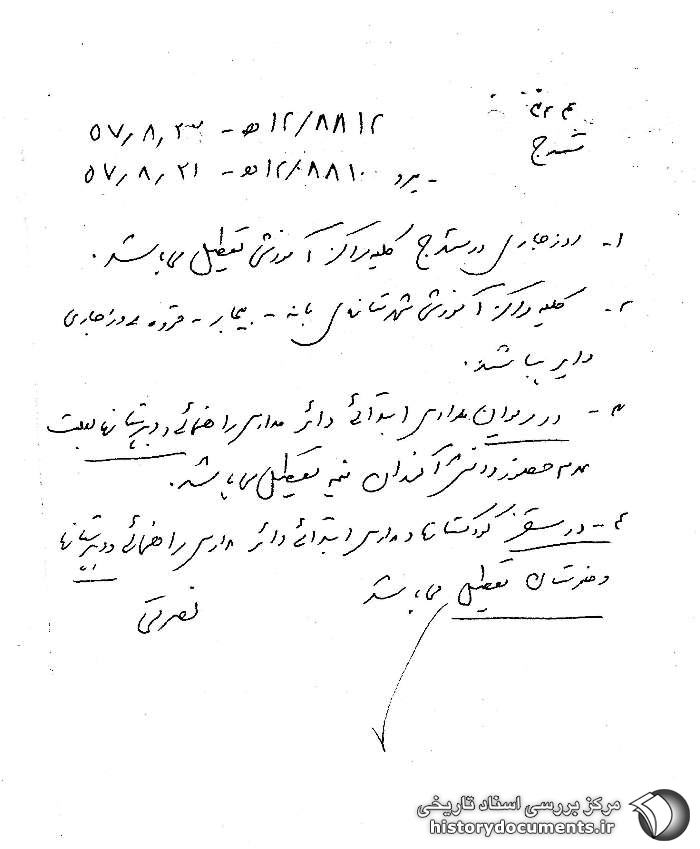 سنندج
۱۲/۸۸۱۲ ه‍ - ۵۷٫۸٫۲۳
- پیرو ۱۲/۸۸۱۰ ه‍ - ۵۷٫۸٫۲۱
۱- روز جاری در سنندج کلیه مراکز آموزشی تعطیل می‌باشد.
۲- کلیه مراکز آموزشی شهرستانهای بانه - بیجار - قروه روز جاری
دایر میباشند.
۳- در مریوان مدارس ابتدائی دائر مدارس راهنمائی و دبیرستانها بعلت
عدم حضور دانش‌آموزان نیمه تعطیل می‌باشد.
۴- در سقز کودکستانها و مدارس ابتدائی دائر مدارس راهنمائی و دبیرستانها
و هنرستان تعطیل می‌باشد
مرکز بررسی اسناد تاریخی
historydocuments.ir